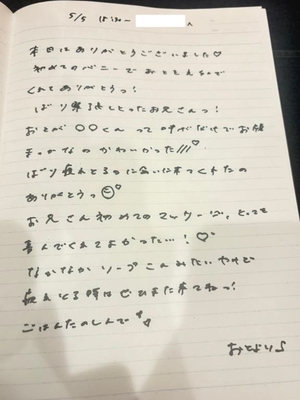 5/5 18:30〜 へ
本日はありがとうございました♡
初めてのバニーでおとと えらんで
くれてありがとうっ!
ばり緊張しとったお兄さんっ!
おとが〇〇くんって呼ぶだけでお顔
まっかなの かわいかった///♡
ばり疲れとるのに会いに来てくれたの
ありがとうっ
お兄さん初めてのマッサージ、とっても
喜んでくれてよかった…!♡
なかなかソープこんみたいやけど
疲れとる時はぜひまた来てねっ!
ごはんたのしんで
おとより♪